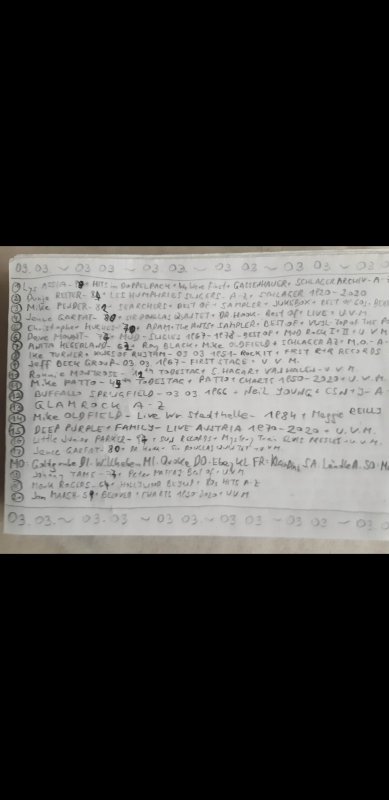 03.03. ~ 03 03 ~ 03 03 ~ 03 03 ~ 03 03 ~ 03 03
① Lys ASSIA - HITS im DOPPELPACK + GASSENHAUER + SCHLAGERARCHIV - A -
② Dunja REITER - LES HUMPHRIES SINGERS A-Z + SCHLAGER 1920-2020
③ Mike PENDER - 82 - SEARCHERS + BEST OF + SAMPLER + JUKEBOX + BEST OF 60s
④ Jance GARFAT - 80 - SIR DOUGLAS QUINTET + DR Hook - Best of + LIVE + U.V.M.
⑤ Christopher HUGHES - 70 - ADAM + THE ANTS + SAMPLER + BEST OF + VINYL - TOP OF THE
⑥ Dave MOUNT - MUD - SINGLES 1967-1978 - BEST OF + MUD ROCK I + II + U.V.M.
⑦ ANITA HEGERLAND - 62 - Roy BLACK + Mike OLDFIELD + SCHLAGER AZ + M.O. - A -
⑧ Ike TURNER + KINGS OF RHYTHM - 03 03 1951 - ROCKIT + FIRST R+R RECORDS
⑨ Jeff BECK GROUP - 03. 03 1967 - FIRST STAGE + U.V.M.
⑩ Ronnie MONTROSE - 12th TODESTAG + S. HAGAR + VAN HALEN + U.V.M.
⑪ MIKE PATTO - 45th TODESTAG + PATTO + CHARTS 1950-2020 + U.V.M.
⑫ BUFFALO SPRINGFIELD - 03 03 1966 + Neil YOUNG + CSN + Y - A
⑬ GLAMROCK A-Z
⑭ Mike OLDFIELD - Live Wr Stadthalle - 1984 + Maggie REILLY
⑮ DEEP PURPLE + FAMILY - LIVE AUSTRIA 1970-2020 + U.V.M.
⑯ Little Junior PARKER - + SUN RECORDS + Mystery Train ELVIS PRESLEY + U.V.M.
⑰ Jance GARFAT - 80 - DR Hook - SIR DOUGLAS QUINTET + U.V.M.
MO: DI: Wilhelm MI: DO: FR: SA: SO
John TAMS - + Peter Best of + U.V.M
Mark ROGERS - HOLLYWOOD BEYOND + 80s HITS A-Z
Jon MARSH - BELOVED + CHARTS 1950-2020 + U.V.M
03. 03. ~ 03. 03 ~ 03 03 ~ 03 03 ~ 03 03 ~ 03